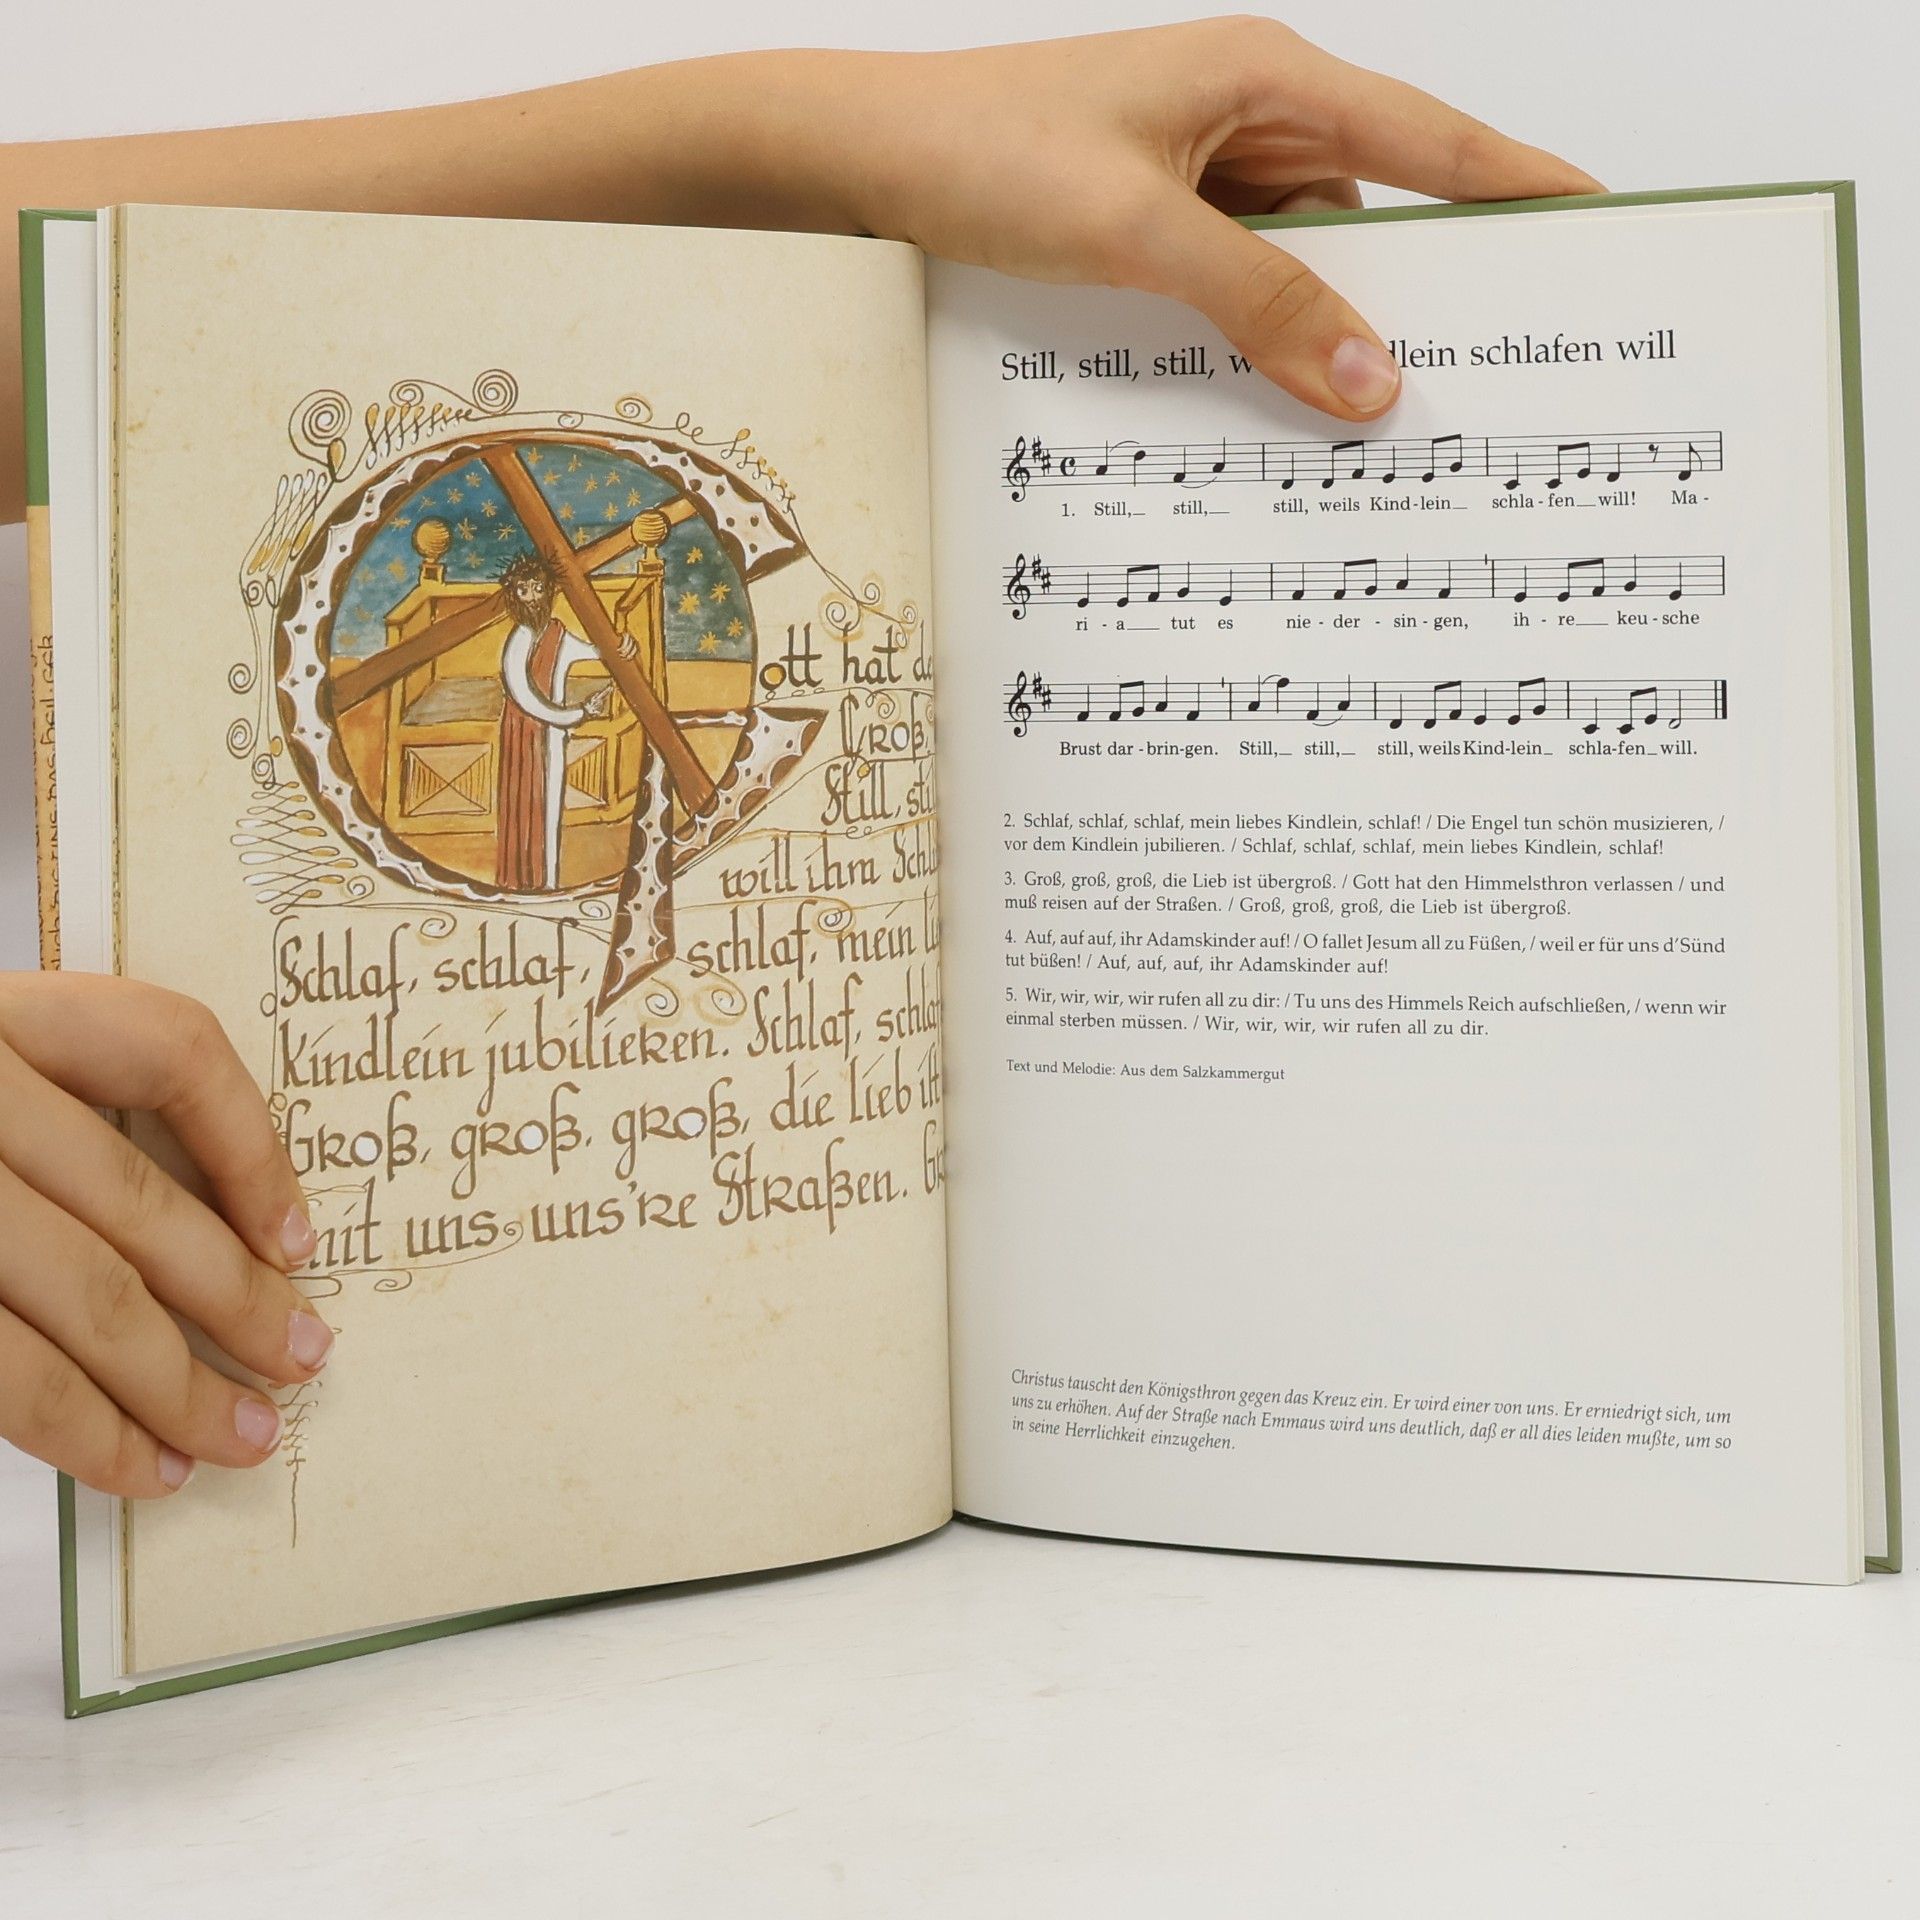 ott hat
Groß,
Still,
will ihm
Schlaf, schlaf, schlaf, mein
Kindlein jubilieren. Schlaf,
Groß, groß, groß, die Lieb ist
mit uns uns're Straßen.
Still, still, still, schlafen will
1. Still, still, still, weils Kind-lein schla-fen will! Ma-
ri-a tut es nie-der-sin-gen, ih-re keu-sche
Brust dar-brin-gen. Still, still, still, weils Kind-lein schla-fen will.
2. Schlaf, schlaf, schlaf, mein liebes Kindlein, schlaf! / Die Engel tun schön musizieren, /
vor dem Kindlein jubilieren. / Schlaf, schlaf, schlaf, mein liebes Kindlein, schlaf!
3. Groß, groß, groß, die Lieb ist übergroß. / Gott hat den Himmelsthron verlassen / und
muß reisen auf der Straßen. / Groß, groß, groß, die Lieb ist übergroß.
4. Auf, auf auf, ihr Adamskinder auf! / O fallet Jesum all zu Füßen, / weil er für uns d'Sünd
tut büßen! / Auf, auf, auf, ihr Adamskinder auf!
5. Wir, wir, wir, wir rufen all zu dir: / Tu uns des Himmels Reich aufschließen, / wenn wir
einmal sterben müssen. / Wir, wir, wir, wir rufen all zu dir.
Text und Melodie: Aus dem Salzkammergut
Christus tauscht den Königsthron gegen das Kreuz ein. Er wird einer von uns. Er erniedrigt sich, um
uns zu erhöhen. Auf der Straße nach Emmaus wird uns deutlich, daß er all dies leiden mußte, um so
in seine Herrlichkeit einzugehen.